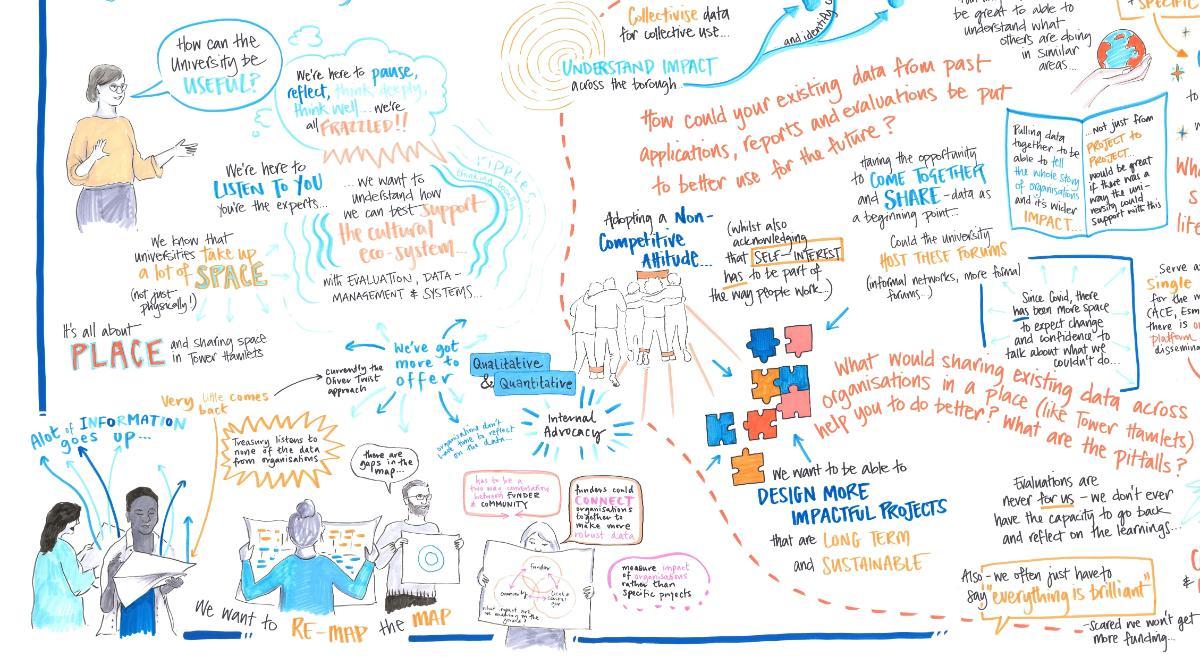 How can the
university be
USEFUL?
We're here to pause,
reflect, think deeply,
think well... we're
all FRAZZLED!!
We're here to
LISTEN TO YOU
you're the experts...
...we want to
understand how
we can best support
the cultural
eco-system...
with EVALUATION, DATA-
MANAGEMENT & SYSTEMS...
ripples...
We know that
universities take up
a lot of SPACE
(not just
physically!)
It's all about
PLACE and sharing space
in Tower Hamlets
We've got
more to
offer
currently the
Oliver Twist
approach
Very little comes
back
A lot of INFORMATION
goes up...
Treasury listens to
none of the data
from organisations
there are
gaps in the
map...
We want to RE-MAP the MAP
Qualitative
& Quantitative
Internal
Advocacy
organisations don't
have time to reflect
on the data...
has to be a
two way conversation
between FUNDER
& COMMUNITY
funders could
CONNECT
organisations
together to
make more
robust data
funder
measure impact
of organisations
rather than
specific projects
Collectivise data
for collective use...
UNDERSTAND IMPACT
across the borough...
and identify
be great to able to
understand what
others are doing
in similar
areas...
+ SPECIFIC
How could your existing data from past
applications, reports and evaluations be put
to better use for the future?
Pulling data
together to be
able to tell
the whole story
of organisations
and it's wider
IMPACT...
...not just from
PROJECT to
PROJECT...
would be great
if there was a
way the uni-
versity could
support with this
Adopting a Non-
Competitive
Attitude...
(whilst also
acknowledging
that SELF-INTEREST
has to be part of
the way people work...)
Having the opportunity
to COME TOGETHER
and SHARE - data as
a beginning point...
Could the university
HOST THESE FORUMS
(informal networks, more formal
forums...)
Since Covid, there
has been more space
to expect change
and confidence to
talk about what we
couldn't do...
Serve a
Single
for the
(ACE, Esm
there is
platform
dissemina
What would sharing existing data across
organisations in a place (like Tower Hamlets)
help you to do better? What are the
pitfalls?
We want to be able to
DESIGN MORE
IMPACTFUL PROJECTS
that are LONG TERM
and SUSTAINABLE
Evaluations are
never for us - we don't ever
have the capacity to go back
and reflect on the learnings...
Also - we often just have to
say "everything is brilliant"
- scared we won't get
more funding...